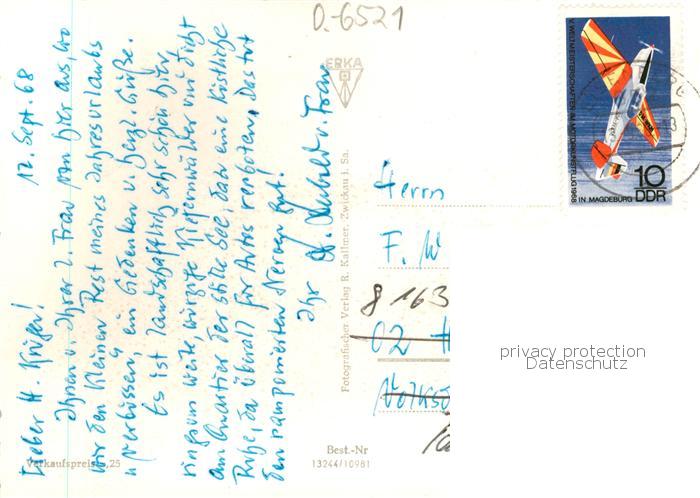 12. Sept. 68
Lieber H. Krüger!
Ihnen u. Ihrer l. Frau von hier aus, wo
wir den kleinen Rest meines Jahresurlaubs
"verbüssen", ein Gedenken u. herzl. Grüße.
Es ist landschaftlich sehr schön hier,
ringsum weite, würzige Kiefernwälder und dicht
am Quartier der stille See, dazu eine köstliche
Ruhe, da überall für Autos verboten. Das tut
den ramponierten Nerven gut!
Ihr u. Frau
Verkaufspreis -,25
D.-6521
ERKA
Fotografischer Verlag R. Kallmer, Zwickau i. Sa.
Best.-Nr
13244/10981
V. WELTMEISTERSCHAFTEN IM MOTORKUNSTFLUG 1968 IN MAGDEBURG
10
DDR
Herrn
F. W
8 163
02 H
privacy protection
Datenschutz